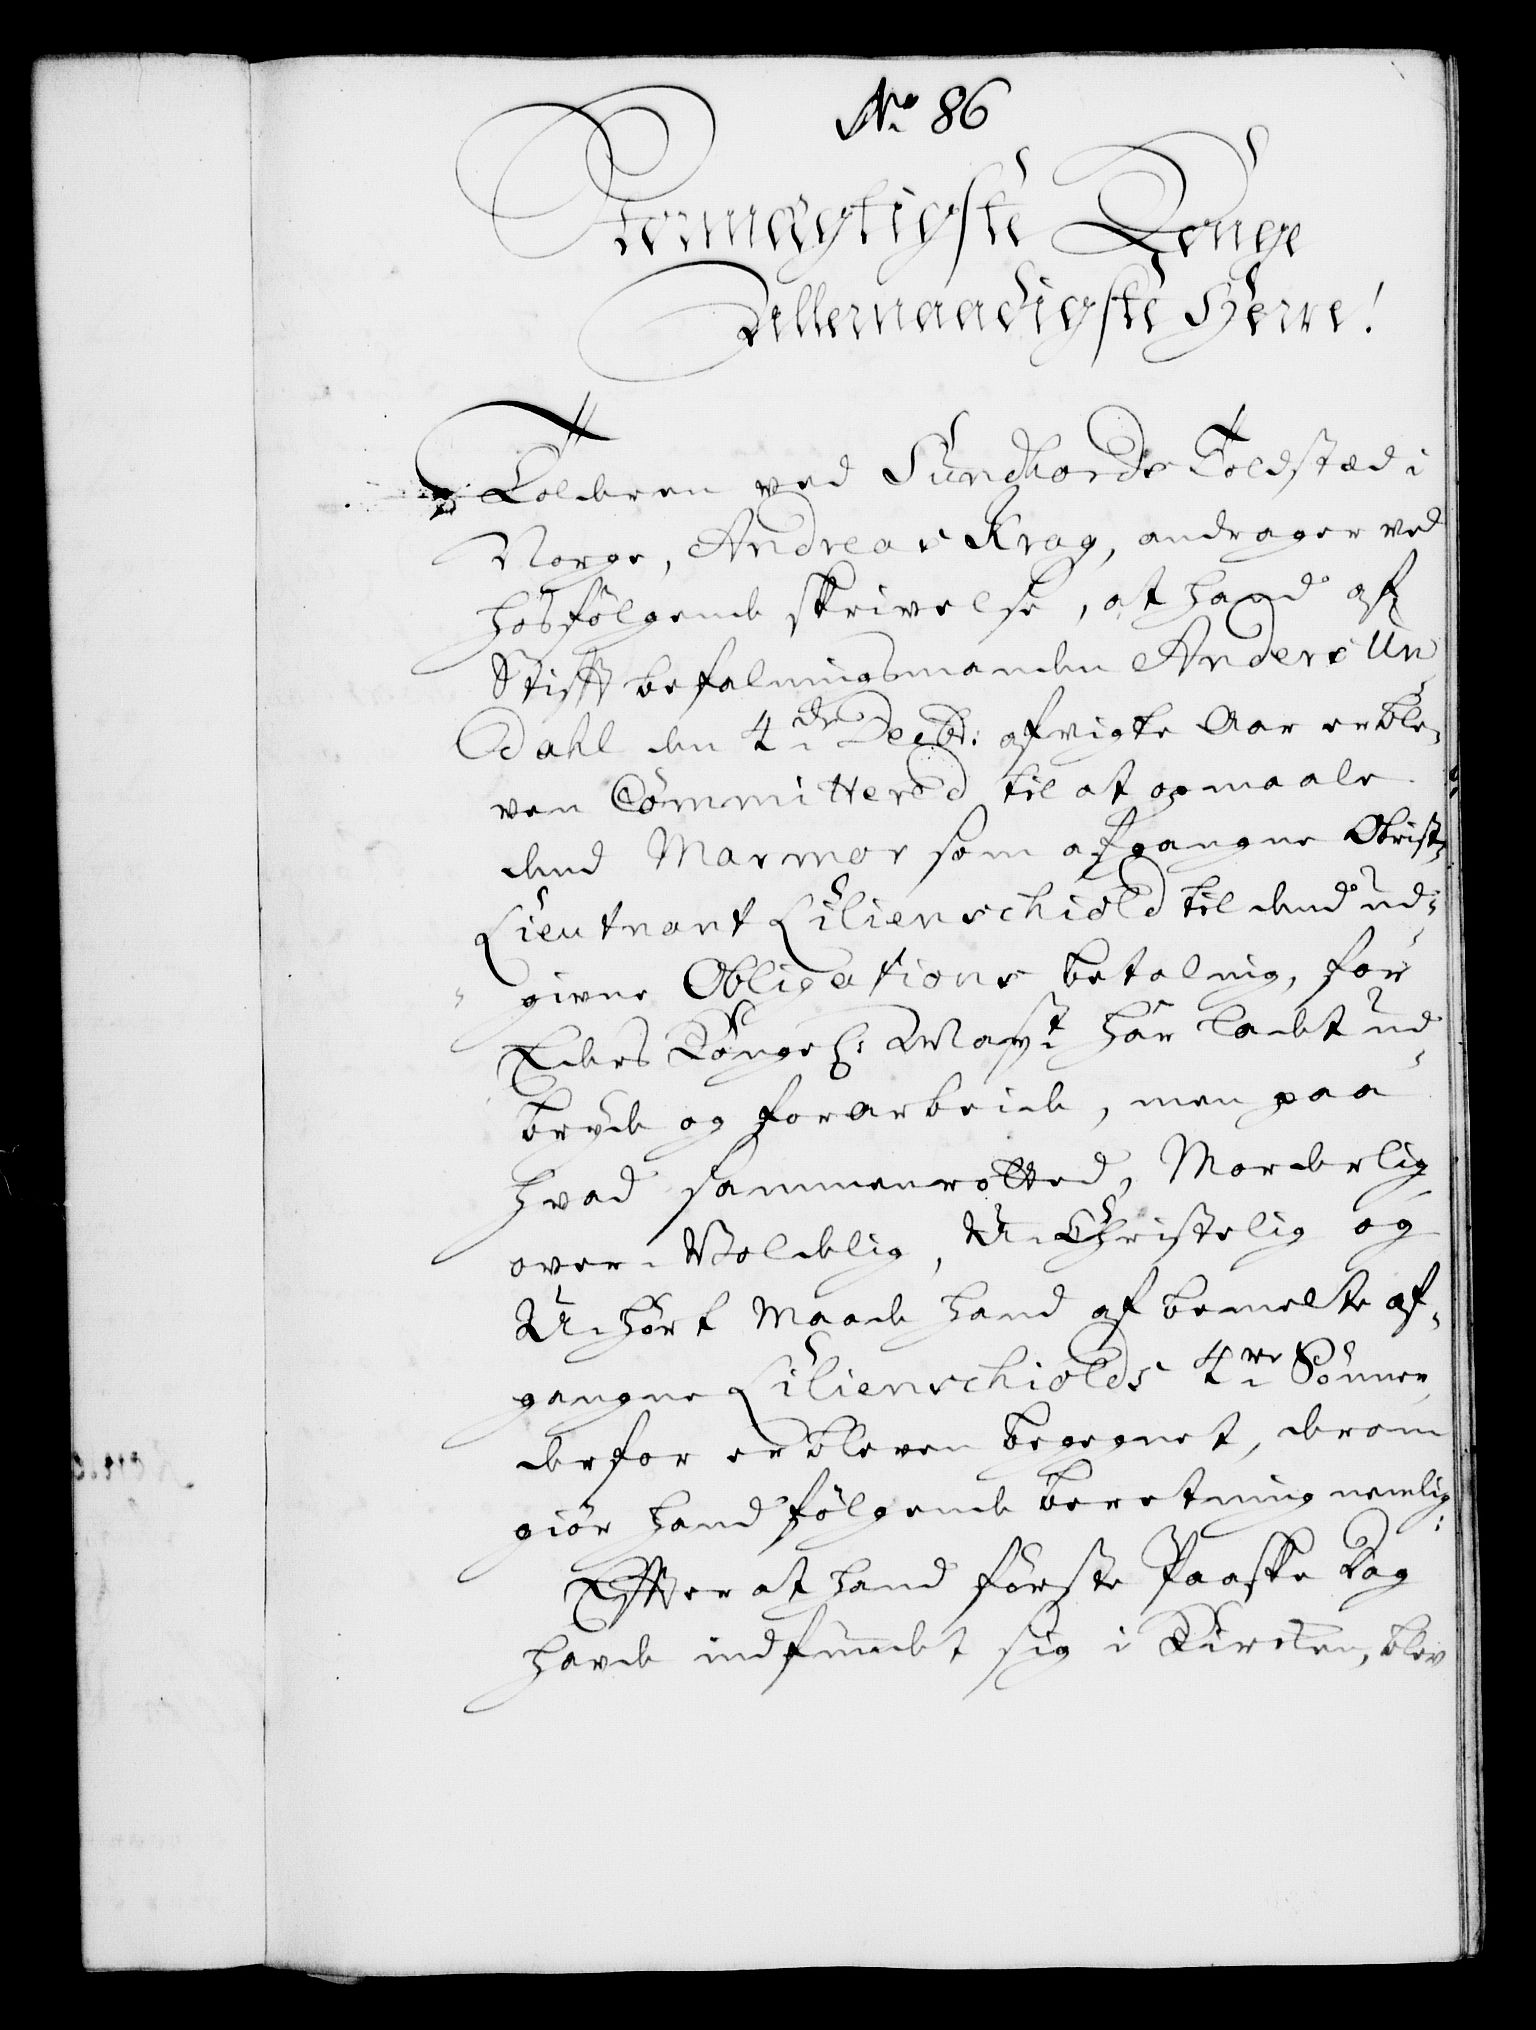 No. 86
Stormægtigste Konge
Allernaadigste Herre!
Tolderen ved Sundhords Toldstæd i
Norge, Andreas Krag, andrager ved
hosfölgende skrivelse, at hand af
Stiftbefalningsmanden Anders Un
Dahl den 4de Decbr: afvigte Aar er ble-
ven Committered til at opmaale
dend Marmor som afgangne Obrist-
Lieutnant Lilienschiold til dend ud-
givne Obligations betaling, for
Eders Konge l: Mayt har ladet ud
bryde og forarbeide, men paa
hvad sammenrotted, Morderlig
over-Voldelig, U-Christelig og
U-hört Maade hand af bemelte af-
gangne Lilienschiolds 4re Sönner
derfor er bleven begegnet, derom
giör hand fölgende beretning nemlig:
Efter at hand förste Paaske Dag
havde indfundet sig i Kirken, blev